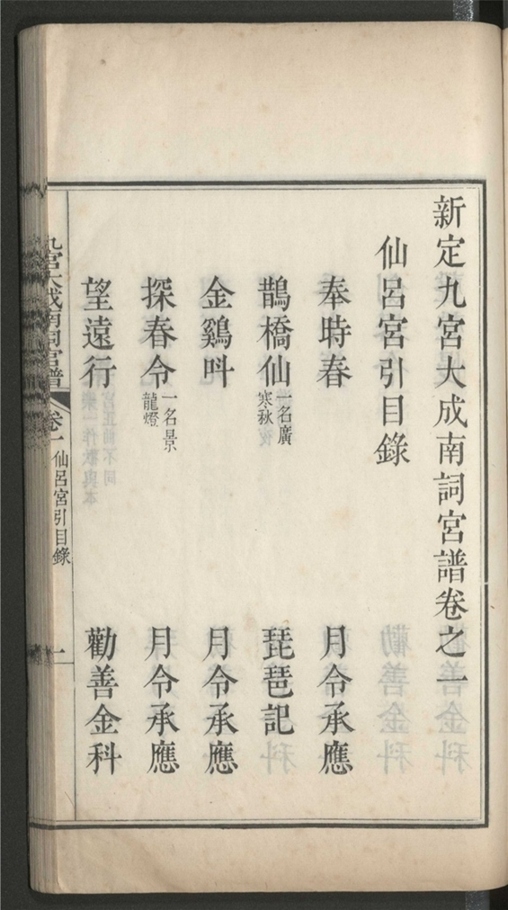 新定九宮大成南詞宮譜卷之一
仙呂宮引目錄
奉時春 月令承應
鵲橋仙 一名廣寒秋 琵琶記
金鷄呌 月令承應
探春令 一名景龍燈 月令承應
望遠行 勸善金科
九宮大成南詞宮譜 卷一 仙呂宮引目錄 一